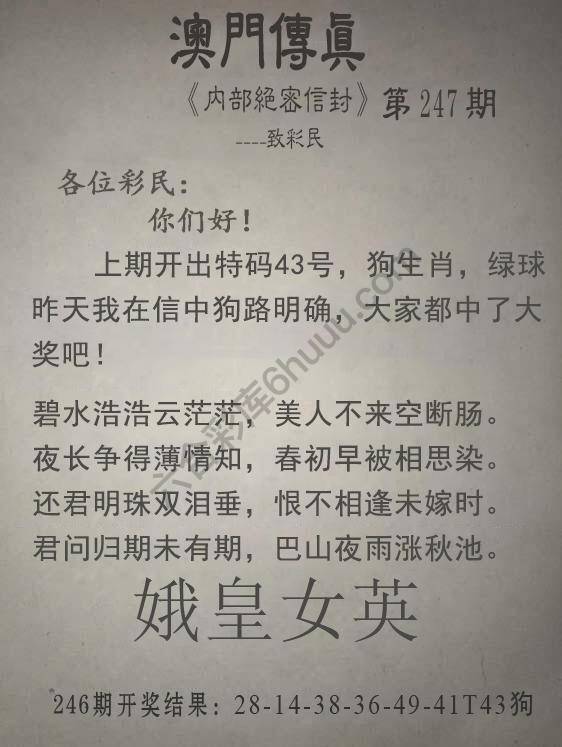 澳門傳真
《内部絕密信封》第247期
----致彩民
各位彩民：
你们好！
上期开出特码43号，狗生肖，绿球
昨天我在信中狗路明确，大家都中了大
奖吧！
碧水浩浩云茫茫，美人不来空断肠。
夜长争得薄情知，春初早被相思染。
还君明珠双泪垂，恨不相逢未嫁时。
君问归期未有期，巴山夜雨涨秋池。
娥皇女英
246期开奖结果：28-14-38-36-49-41T43狗
六合彩库6huuu.com